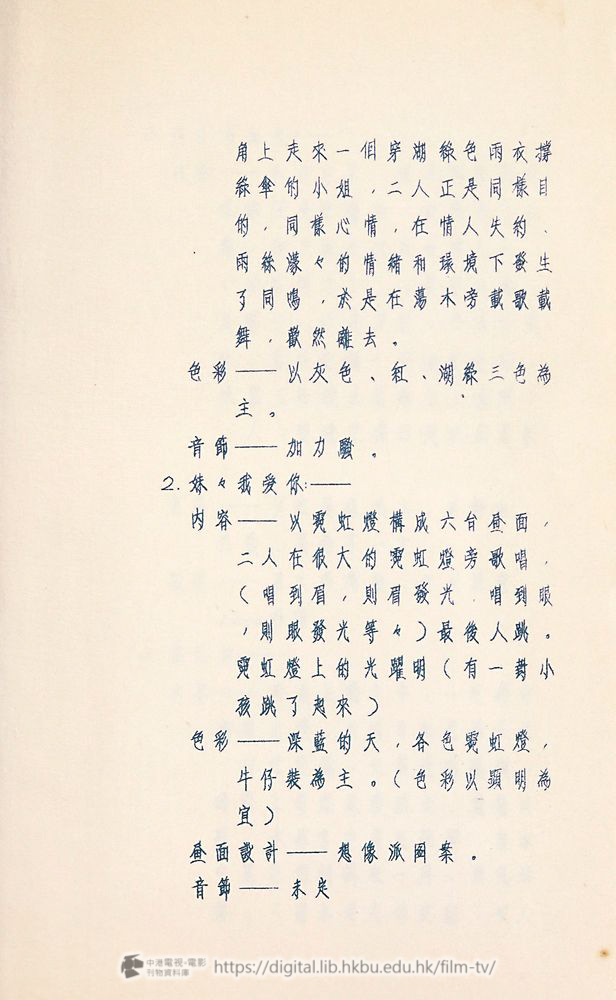 角上走來一個穿湖綠色雨衣撐
綠傘的小姐，二人正是同樣目
的，同樣心情，在情人失約、
雨絲濛々的情緒和環境下發生
了同鳴，於是在蕩木旁載歌載
舞，歡然離去。
色彩——以灰色、紅、湖綠三色為
主。
音節——加力騷。
2. 妹々我愛你:——
內容——以霓虹燈構成六台畫面，
二人在很大的霓虹燈旁歌唱，
（唱到眉，則眉發光．唱到眼
，則眼發光等々）最後人跳。
霓虹燈上的光躍明（有一對小
孩跳了起來）
色彩——深藍的天，各色霓虹燈，
牛仔裝為主。（色彩以顯明為
宜）
畫面設計——想像派圖案。
音節——未定
中港電視·電影
刊物資料庫
https://digital.lib.hkbu.edu.hk/film-tv/